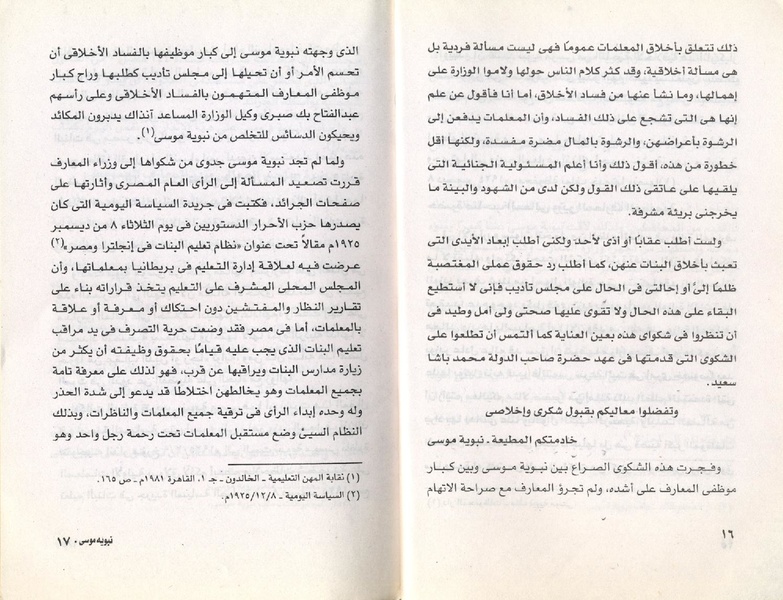 ذلك تتعلق بأخلاق المعلمات عموما فهى ليست مسألة فردية بل
هى مسألة أخلاقية، وقد كثر كلام الناس حولها ولاموا الوزارة على
إهمالها، وما نشأ عنها من فساد الأخلاق، اما أنا فأقول عن علم
إنها هى التى تشجع على ذلك الفساد، وأن المعلمات يدفعن إلى
الرشوة بأعراضهن، والرشوة بالمال مضرة مفسدة، ولكنها أقل
خطورة من هذه، أقول ذلك وأنا أعلم المسئولية الجنائية التى
يلقيها على عاتقى ذلك القول ولكن لدى من الشهود والبينة ما
يخرجنى بريئة مشرفة.
ولست أطلب عقابًا أو أذى لأحد ولكنى أطلب إبعاد الأيدى التى
تعبث بأخلاق البنات عنهن، كما أطلب رد حقوق عملى المغتصبة
ظلمًا إلىّ أو إحالتى فى الحال على مجلس تأديب فإنى لا أستطيع
البقاء على هذه الحال ولا تقوى عليها صحتى ولى أمل وطيد فى
أن تنظروا فى شكواى هذه بعين العناية كما ألتمس أن تطلعوا على
الشكوى التى قدمتها فى عهد حضرة صاحب الدولة محمد باشا
سعيد.
وتفضلوا معاليكم بقبول شكرى وإخلاصى
خادمتكم المطيعة ـ نبوية موسى
وفجرت هذه الشكوى الصراع بين نبوية موسى وبين كبار
موظفى المعارف على أشده، ولم تجرؤ المعارف مع صراحة الاتهام
١٦
الذى وجهته نبوية موسى إلى كبار موظفيها بالفساد الأخلاقى أن
تحسم الأمر أو أن تحيلها إلى مجلس تأديب كطلبها وراح كبار
موظفى المعارف المتهمون بالفساد الأخلاقى وعلى رأسهم
عبدالفتاح بك صبرى وكيل الوزارة المساعد آنذاك يدبرون المكائد
ويحيكون الدسائس للتخلص من نبوية موسى(١).
ولما لم تجد نبوية موسى جدوى من شكواها إلى وزراء المعارف
قررت تصعيد المسألة إلى الرأى العام المصرى وأثارتها على
صفحات الجرائد، فكتبت فى جريدة السياسة اليومية التى كان
يصدرها حزب الأحرار الدستوريين فى يوم الثلاثاء ٨ من ديسمبر
١٩٢٥م مقالاً تحت عنوان «نظام تعليم البنات فى إنجلترا ومصر»(٢)
عرضت فيه لعلاقة إدارة التعليم فى بريطانيا بمعلماتها، وأن
المجلس المحلى المشرف على التعليم يتخذ قراراته بناء على
تقارير النظار والمفتشين دون احتكاك أو معرفة أو علاقة
بالمعلمات، أما فى مصر فقد وضعت حرية التصرف فى يد مراقب
تعليم البنات الذى يجب عليه قيامًا بحقوق وظيفته أن يكثر من
زيارة مدارس البنات ويراقبها عن قرب، فهو لذلك على معرفة تامة
بجميع المعلمات وهو يخالطهن اختلاطًا قد يدعو إلى شدة الحذر
وله وحده إبداء الرأى فى ترقية جميع المعلمات والناظرات، وبذلك
النظام السيئ وضع مستقبل المعلمات تحت رحمة رجل واحد وهو
(١) نقابة المهن التعليمية ـ الخالدون ـ جـ ١. القاهرة ١٩٨١م ـ ص ١٦٥.
(٢) السياسة اليومية ـ ١٩٢٥/١٢/٨م.
نبويه موسى ٠ ١٧